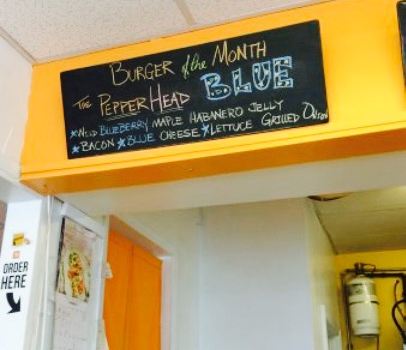 BURGER of the MONTH
THE PEPPERHEAD BLUE
*WILD BLUEBERRY MAPLE HABANERO JELLY
*BACON *BLUE CHEESE *LETTUCE GRILLED ONION
ORDER
HERE